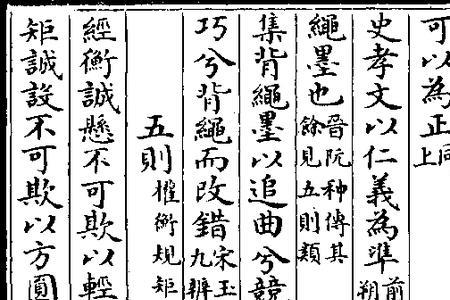 可以為正同上
史孝文以仁義為準前朔
繩墨也晉阮种傳其餘見五則類
集背繩墨以追曲兮競
巧兮背繩而改錯宋玉九辨
五則權衡規矩
經衡誠懸不可欺以輕
矩誠設不可欺以方圓